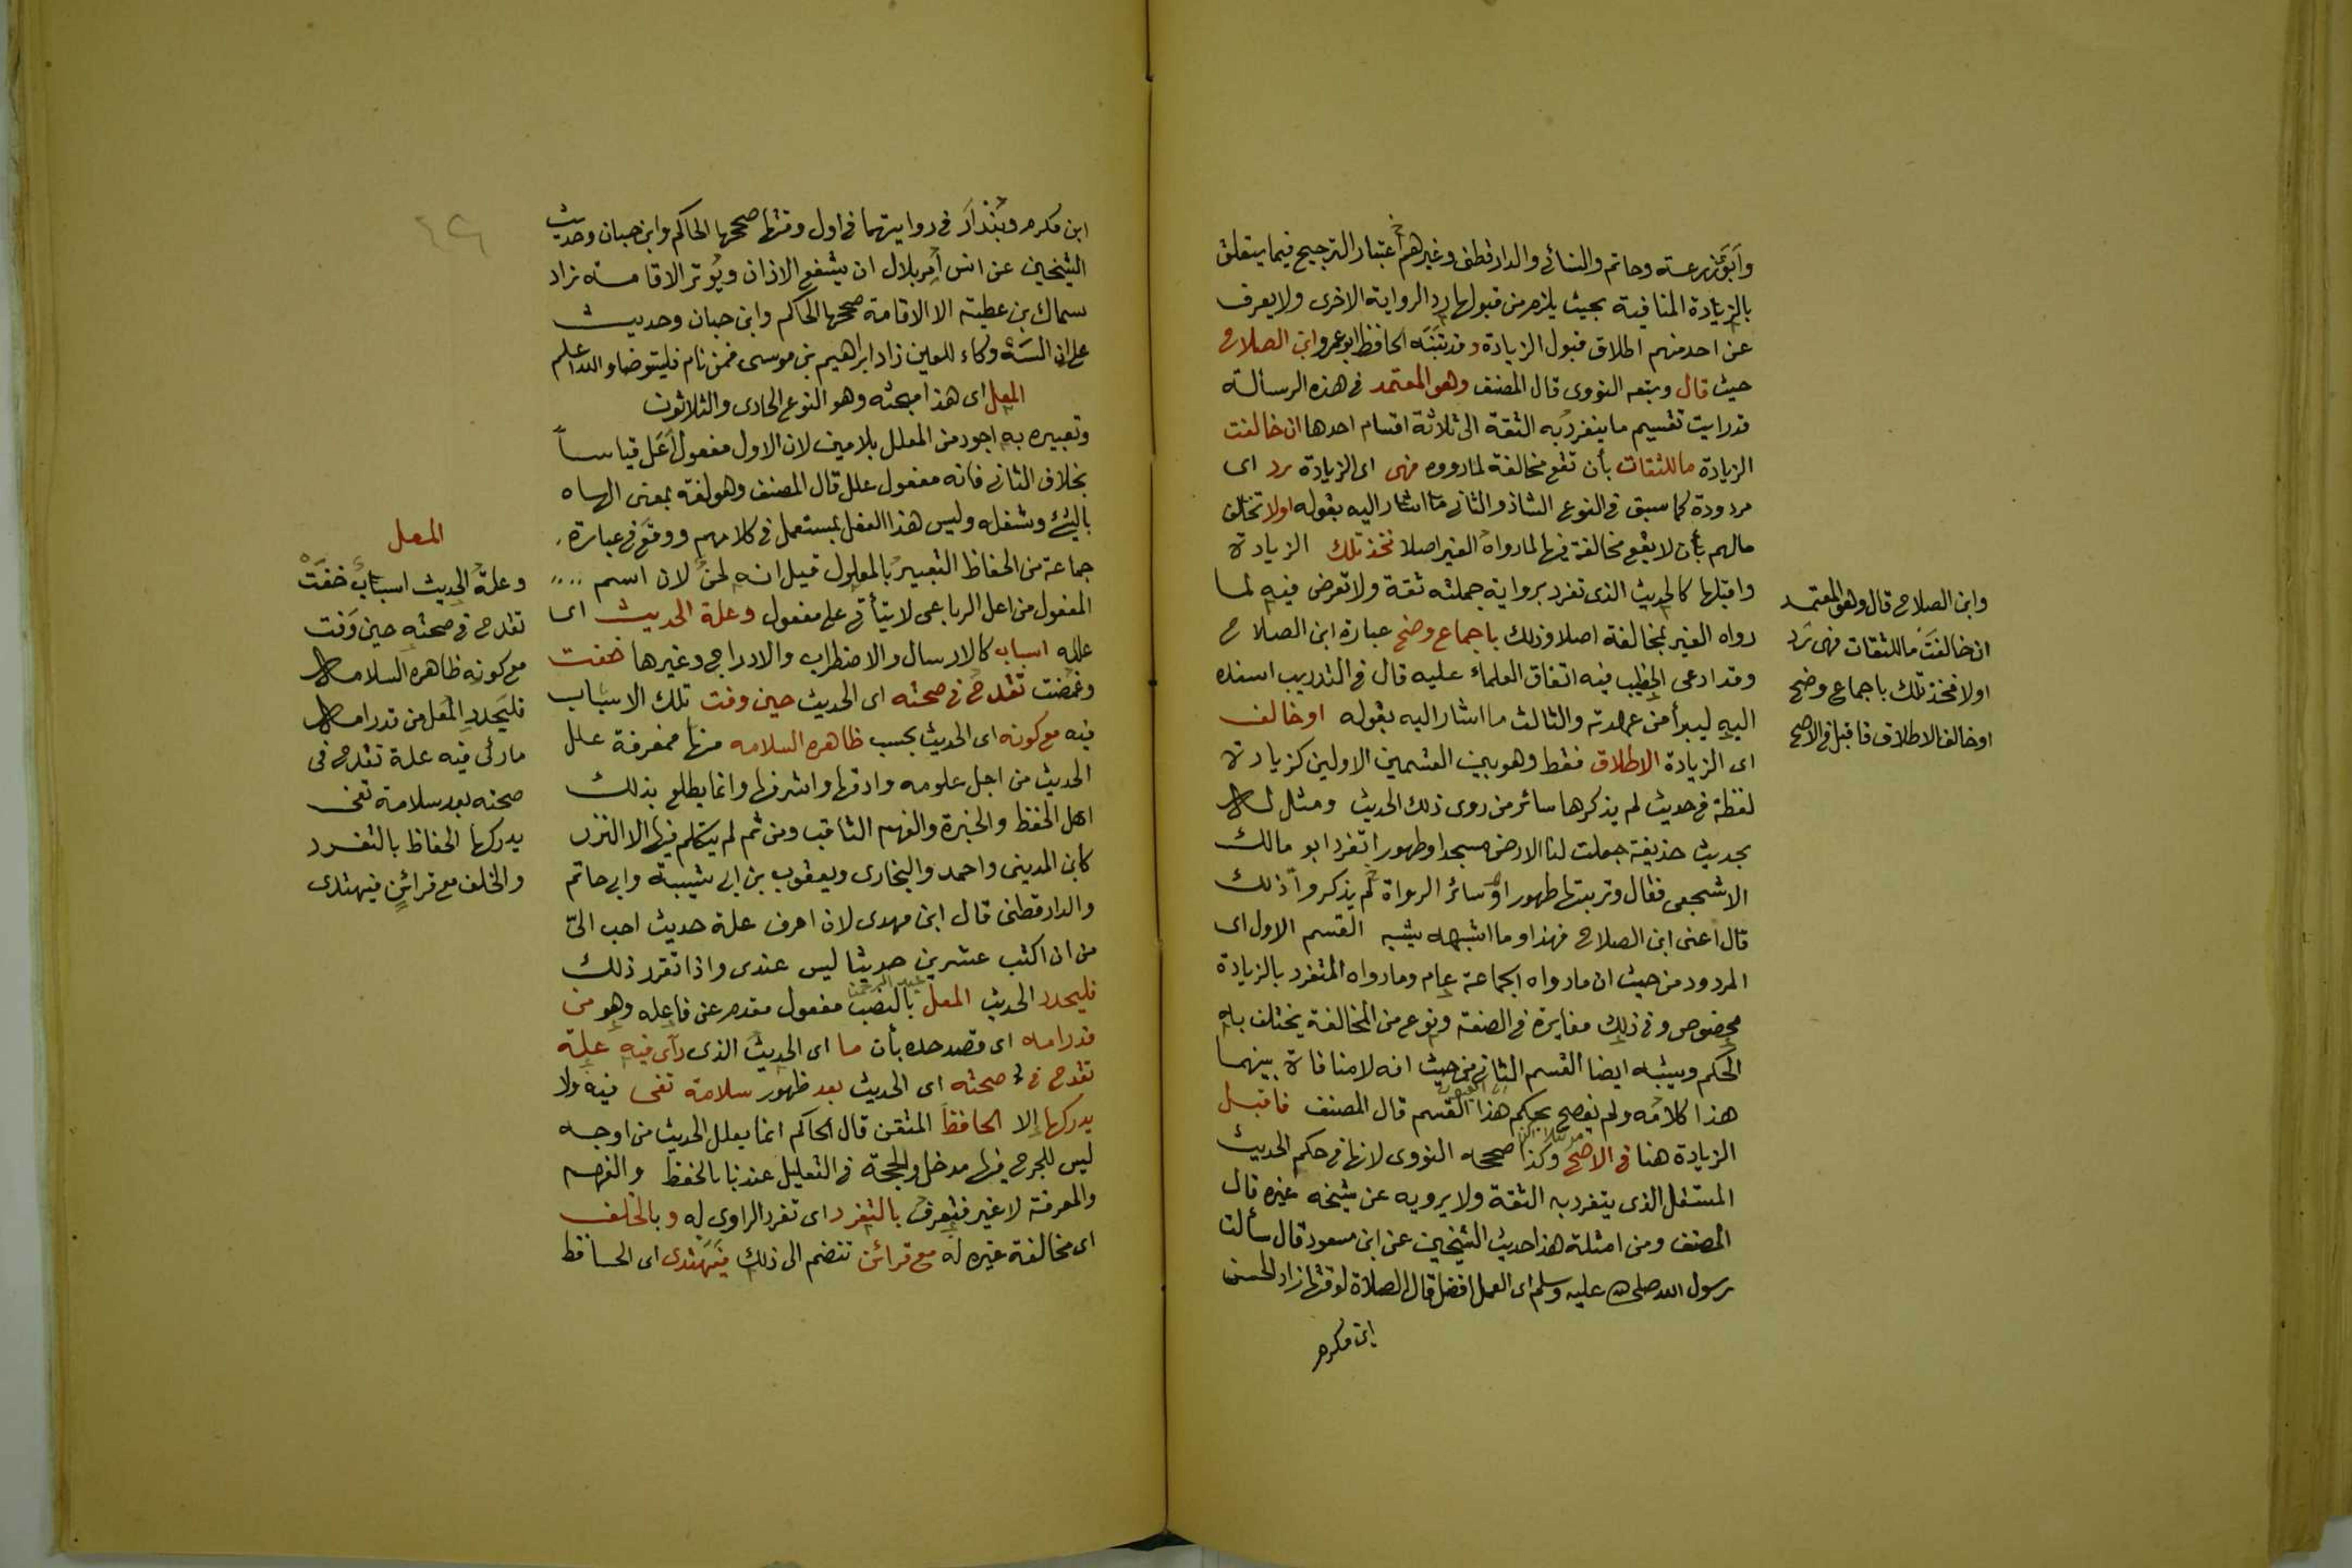 وأبو زرعة وحاتم والنسائي والدارقطني وغيرهم اعتبار الترجيح فيما يتعلق
بالزيادة المنافية بحيث يلزم من قبولها رد الرواية الاخرى ولا يعرف
عن احد منهم اطلاق قبول الزيادة وقد تبنه الحافظ ابو عمرو ابن الصلاح
حيث قال وبتعه النووى قال المصنف وهو المعتمد فى هذه الرسالة
قد رايت تقسيم ما ينفرد به الثقة الى ثلاثة اقسام احدها ان خالفت
الزيادة ما للثقات بأن تقع مخالفة لما رووه فهى اى الزيادة رد اى
مردودة كما سبق فى النوع الشاذ والثانى ما اشار اليه بقوله اولا تخالف
مالهم بأن لا يقع مخالفة فيها لما رواه الغير اصلا فخذ تلك الزيادة
واقبلها كالحديث الذى تفرد برواية جملته ثقة ولا تعرض فيه لما
رواه الغير بمخالفة اصلا وذلك باجماع وضح عبارة ابن الصلاح
وقد ادعى الخطيب فيه اتفاق العلماء عليه قال فى التدريب اسنده
اليه ليبرأ من عهدته والثالث ما اشار اليه بقوله او خالف
اى الزيادة الاطلاق فقط وهو بين القسمين الاولين كزيادة
لفظة فى حديث لم يذكرها سائر من روى ذلك الحديث ومثل له
بحديث حذيفة جعلت لنا الارض مسجدا وطهورا تفرد ابو مالك
الاشجعى فقال وتربتها طهورا وسائر الرواة لم يذكروا ذلك
قال أعنى ابن الصلاح فهذا وما اشبهه يشبه القسم الاول اى
المردود من حيث ان ما رواه الجماعة عام وما رواه المتفرد بالزيادة
مخصوص وفى ذلك مغايرة فى الصفة ونوع من المخالفة يختلف به
الحكم ويشبه ايضا القسم الثانى من حيث انه لا منافاة بينهما
هذا كلامه ولم يفصح بحكم هذا القسم قال المصنف فاقبل
الزيادة هنا فى الاصح وكذا صححه النووى لانها فى حكم الحديث
المستقل الذى يتفرد به الثقة ولا يرويه عن شيخه غيره قال
المصنف ومن امثلة هذا حديث الشيخين عن ابن مسعود قال سألت
رسول الله صلى الله عليه وسلم اى العمل افضل قال الصلاة لوقتها زاد الحسن
ابن مكرم
وابن الصلاح قال وهو المعتمد
ان خالفت ما للثقات فهى رد
اولا فخذ تلك باجماع وضح
او خالف الاطلاق فاقبل فى الاصح
ابن مكرم وبندار فى روايتهما فى اول وقتها صححها الحاكم وابن حبان وحديث
الشيخين عن انس أمر بلال ان يشفع الاذان ويوتر الاقامة زاد
سماك بن عطية الا الاقامة صححها الحاكم وابن حبان وحديث
على ان السه وكاء للعين زاد ابراهيم بن موسى فمن نام فليتوضا والله اعلم
المعل اى هذا مبحثه وهو النوع الحادى والثلاثون
وتعبيره به اجود من المعلل بلامين لان الاول مفعول أعل قياسا
بخلاف الثانى فانه مفعول علل قال المصنف وهو لغة بمعنى الهاه
بالشئ وشغله وليس هذا الفعل بمستعمل فى كلامهم ووقع فى عبارة
جماعة من الحفاظ التعبير بالمعلول قيل انه لحن لان اسم
المفعول من اعل الرباعى لا يتأتى على مفعول وعلة الحديث اى
علله اسباب كالارسال والاضطراب والادراج وغيرها خفت
وغمضت تقدح فى صحته اى الحديث حين وفت تلك الاسباب
فيه مع كونه اى الحديث بحسب ظاهره السلامه منها فمعرفة علل
الحديث من اجل علومه وادقها واشرفها وانما يطلع بذلك
اهل الحفظ والخبرة والفهم الثاقب ومن ثم لم يتكلم فيها الا النزر
كابن المدينى واحمد والبخارى ويعقوب بن ابى شيبة وابى حاتم
والدارقطنى قال ابن مهدى لان اعرف علة حديث احب الىّ
من ان اكتب عشرين حديثا ليس عندى واذا تقرر ذلك
فليحدد الحديث المعل بالنصب مفعول مقدم عن فاعله وهو من
قد رامه اى قصد حده بأن ما اى الحديث الذى رأى فيه علة
تقدح فى صحته اى الحديث بعد ظهور سلامة تفى فيه ولا
يدركها إلا الحافظ المتقن قال الحاكم انما يعلل الحديث من اوجه
ليس للجرح فيها مدخل والحجة فى التعليل عندنا بالحفظ والفهم
والمعرفة لا غير فتعرف بالتفرد اى تفرد الراوى له وبالخلف
اى مخالفة غيره له مع قرائن تنضم الى ذلك فيهتدى اى الحافظ
المعل
وعلة الحديث اسباب خفت
تقدح فى صحته حين وفت
مع كونه ظاهره السلامه
فليحدد المعل من قد رامه
ما رئى فيه علة تقدح فى
صحته بعد سلامة تفى
يدركها الحفاظ بالتفرد
والخلف مع قرائن فيهتدى